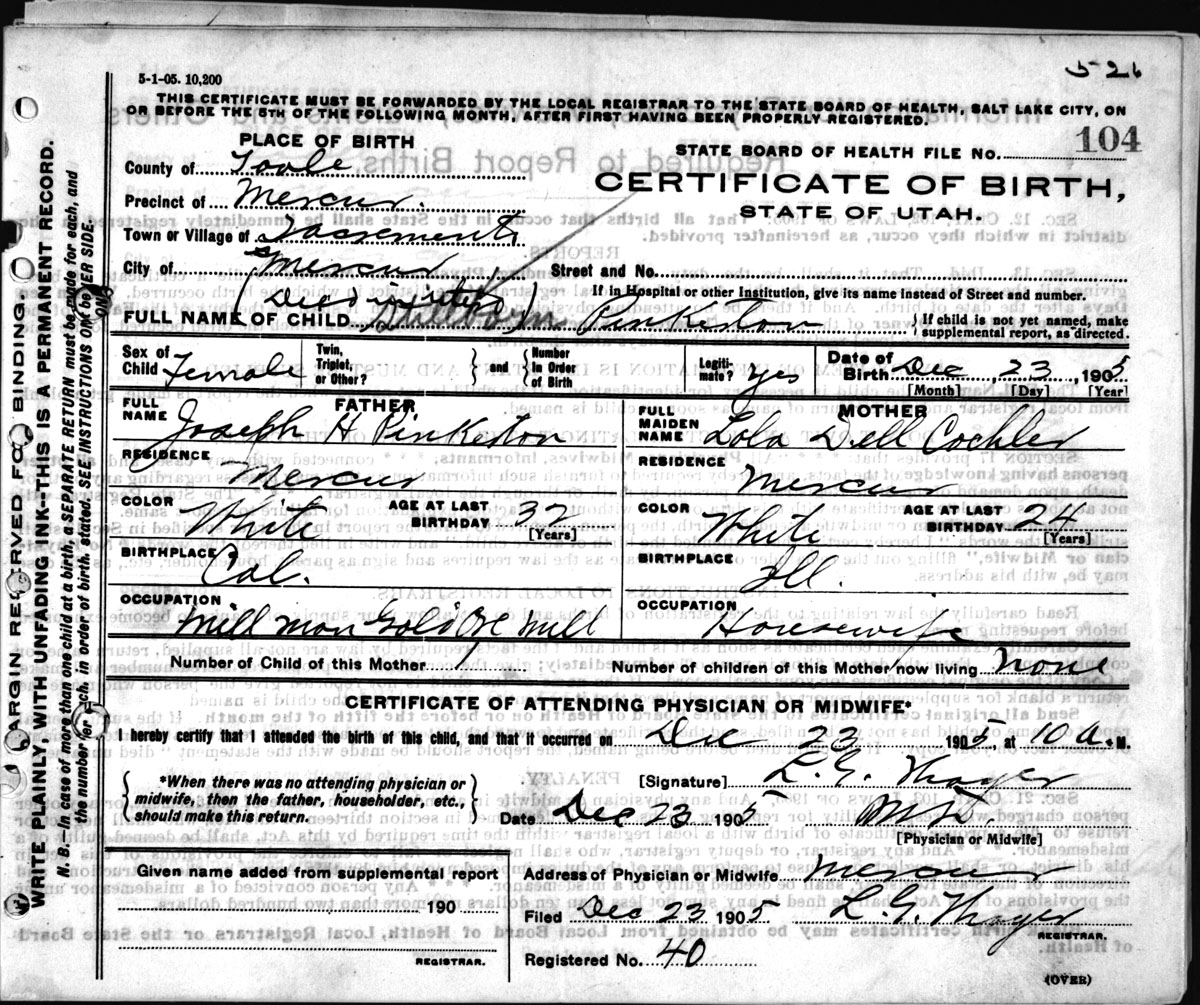 5-26
5-1-05. 10,200
THIS CERTIFICATE MUST BE FORWARDED BY THE LOCAL REGISTRAR TO THE STATE BOARD OF HEALTH, SALT LAKE CITY, ON
OR BEFORE THE 5TH OF THE FOLLOWING MONTH, AFTER FIRST HAVING BEEN PROPERLY REGISTERED.
PLACE OF BIRTH
STATE BOARD OF HEALTH FILE No. 104
County of Tooele
CERTIFICATE OF BIRTH,
STATE OF UTAH.
Precinct of Mercur.
Town or Village of Sacremento
City of Mercur Street and No.
If in Hospital or other Institution, give its name instead of Street and number.
(Died in utero)
FULL NAME OF CHILD Stillborn Pinkerton { If child is not yet named, make
supplemental report, as directed.
Sex of Child Female
Twin, Triplet, or Other? } and { Number in Order of Birth
Legiti-mate? yes
Date of Birth Dec 23, 1905
[Month] [Day] [Year]
FATHER
FULL NAME Joseph H Pinkerton
RESIDENCE Mercur
COLOR White AGE AT LAST BIRTHDAY 32 [Years]
BIRTHPLACE Cal.
OCCUPATION Mill man Gold Ore Mill
MOTHER
FULL MAIDEN NAME Lola Dell Cochler
RESIDENCE Mercur
COLOR White AGE AT LAST BIRTHDAY 24 [Years]
BIRTHPLACE Ill.
OCCUPATION Housewife
Number of Child of this Mother 1 Number of children of this Mother now living none
CERTIFICATE OF ATTENDING PHYSICIAN OR MIDWIFE*
I hereby certify that I attended the birth of this child, and that it occurred on Dec 23 1905, at 10 a. M.
{ *When there was no attending physician or
midwife, then the father, householder, etc.,
should make this return. }
[Signature] L. G. Thayer
Date Dec 23 1905 M.D.
[Physician or Midwife]
Given name added from supplemental report
190
REGISTRAR.
Address of Physician or Midwife Mercur
Filed Dec 23 1905 L. G. Thayer
REGISTRAR.
Registered No. 40
(OVER)
MARGIN RESERVED FOR BINDING.
WRITE PLAINLY WITH UNFADING INK—THIS IS A PERMANENT RECORD.
N. B.—In case of more than one child at a birth, a SEPARATE RETURN must be made for each, and
the number of each, in order of birth, stated. SEE INSTRUCTIONS ON OTHER SIDE.